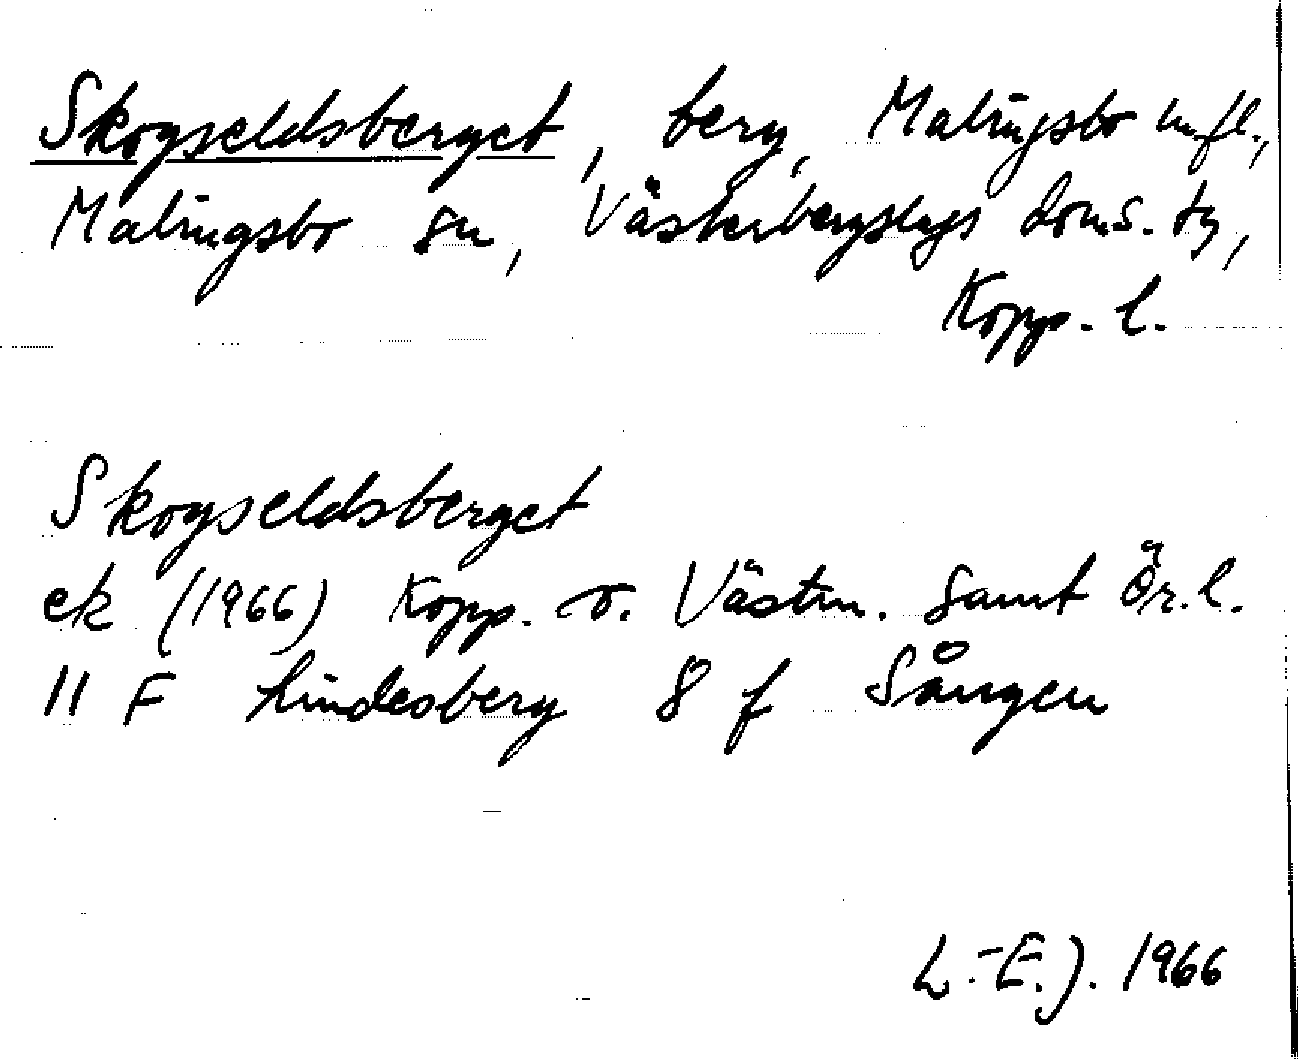 Skogseldsberget, berg, Malingsbo m.fl.,
Malingsbo sn, Västerbergslags doms. tg,
Kopp. l.
Skogseldsberget
ek (1966) Kopp. o. Västm. samt Ör. l.
11 F Lindesberg 8 f Sången
L.-E.J. 1966